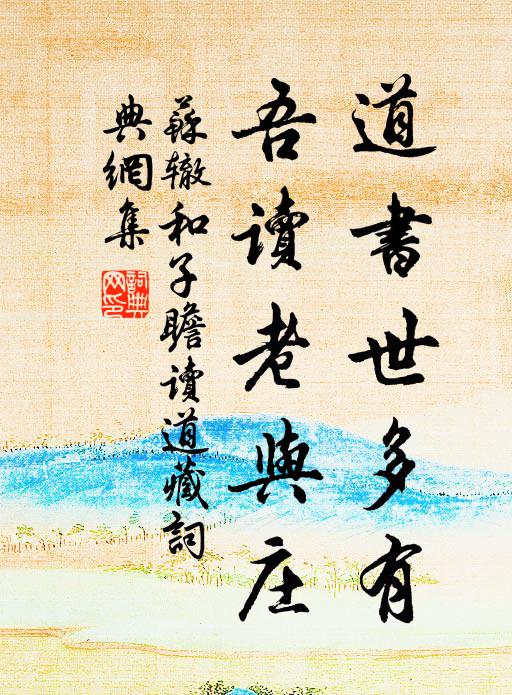 道書世多有
吾讀老與庄
蘇辙和子瞻讀道藏詞
典網集
詞典
网印